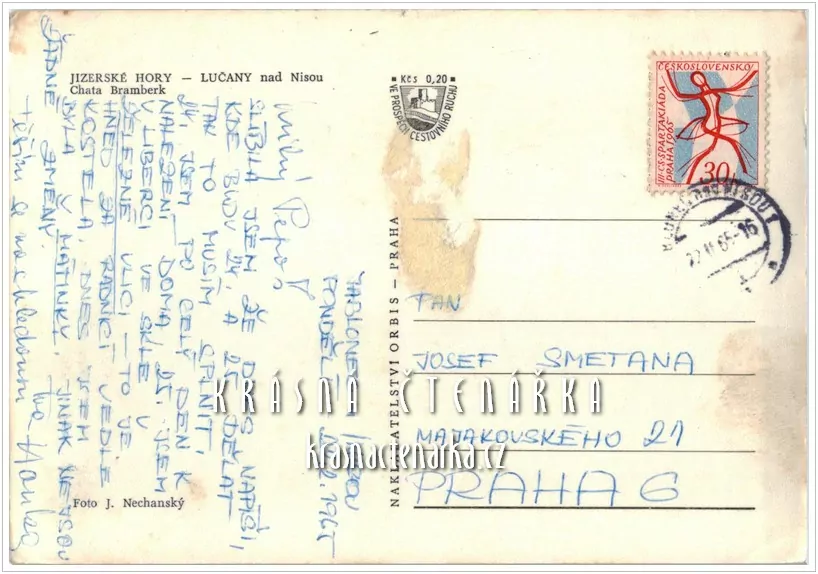 JIZERSKÉ HORY – LUČANY nad Nisou
Chata Bramberk
Kčs 0,20
VE PROSPĚCH CESTOVNÍHO RUCHU
ČESKOSLOVENSKO
III. CS. SPARTAKIÁDA
PRAHA 1965
30
NAD NISOU 1
22.VI.65-16
JABLONEC N/NISOU
PONDĚLÍ
Milý Peťo,
SLÍBILA JSEM ŽE DNES NAPÍŠI,
KDE BUDU 24. A 25. DĚLAT
TAK TO MUSÍM SPLNIT.
24. JSEM PO CELÝ DEN K
NALEZENÍ DOMA, 25. JSEM
V LIBERCI VE SKLE V
ŽELEZNÉ ULICI – TO JE
HNED ZA RADNICÍ VEDLE
KOSTELA. DNES JSEM
BYLA V MATINKY. JINAK NEJSOU
ŽÁDNÉ ZMĚNY.
Těším se na shledanou
Tva Hanka
NAKLADATELSTVÍ ORBIS – PRAHA
PAN
JOSEF SMETANA
MAJAKOVSKÉHO 21
PRAHA 6
KRÁSNÁ ČTENÁŘKA
krasnactenarka.cz
Foto J. Nechanský